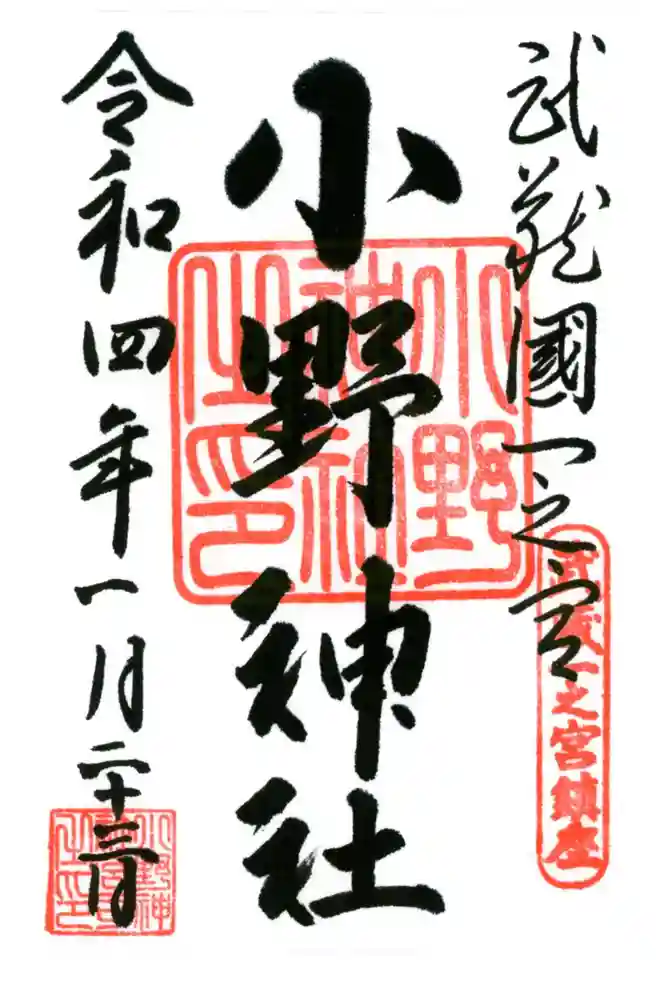 武蔵國一之宮
武蔵一之宮鎮座
小野神社
小野神社之印
令和四年一月二十三日